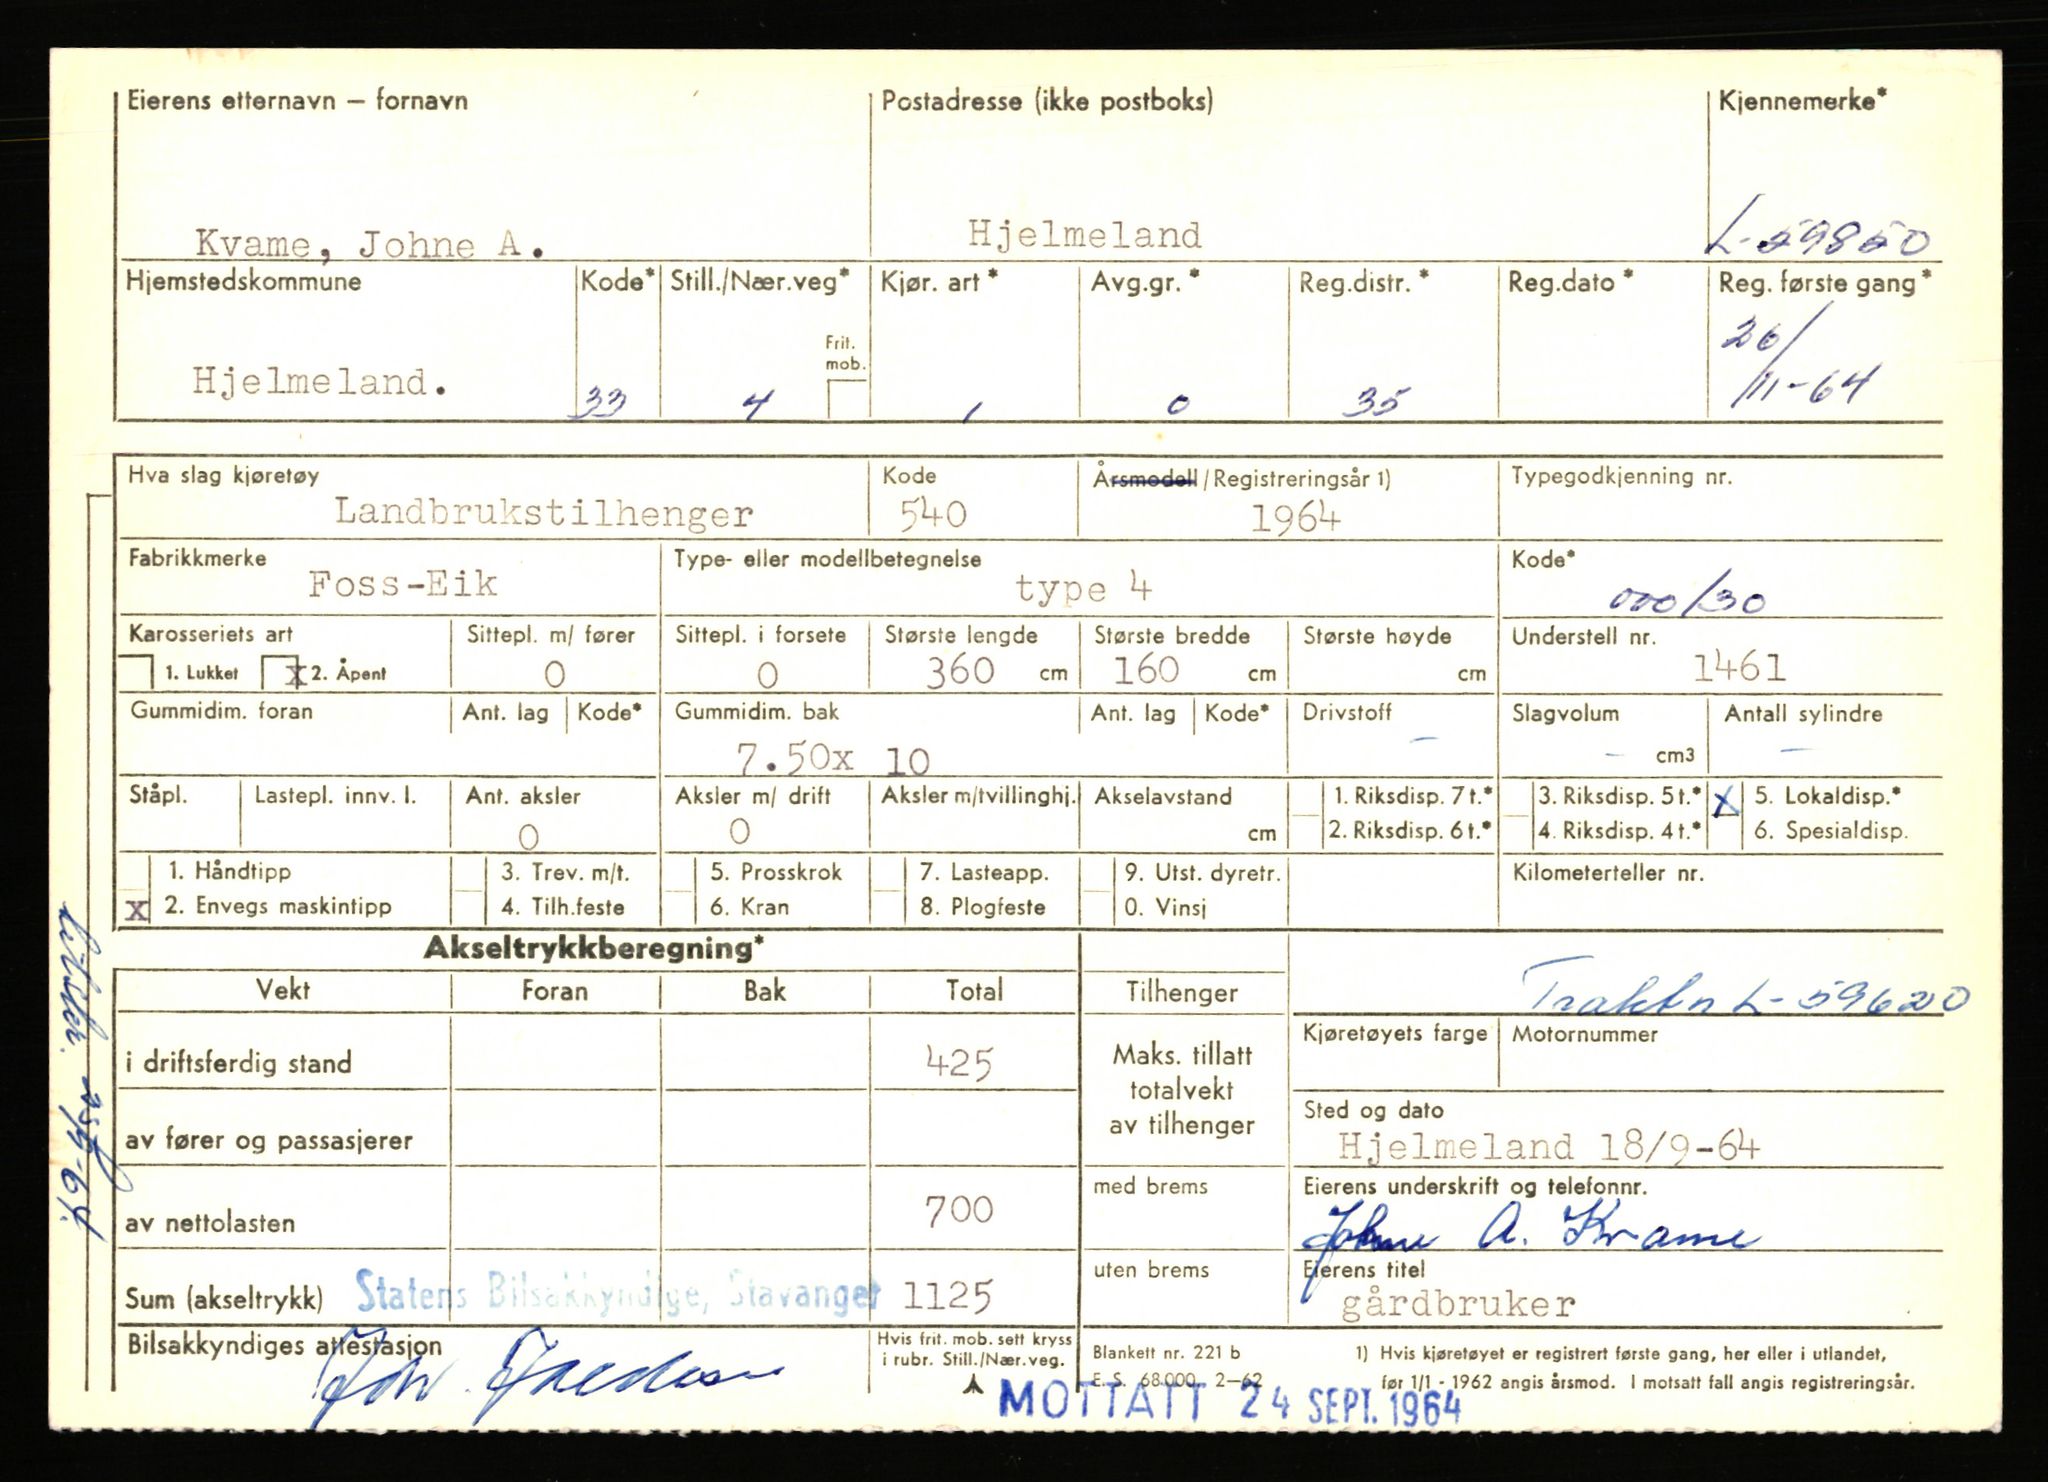 Eierens etternavn – fornavn Postadresse (ikke postboks) Kjennemerke*
Kvame, Johne A. Hjelmeland L-59850
Hjemstedskommune Kode* Still./Nær.veg* Kjør. art* Avg.gr.* Reg.distr.* Reg.dato* Reg. første gang*
Frit. mob.
Hjelmeland. 33 4 1 0 35 26/11-64
Hva slag kjøretøy Kode Årsmodell/Registreringsår 1) Typegodkjenning nr.
Landbrukstilhenger 540 1964
Fabrikkmerke Type- eller modellbetegnelse Kode*
Foss-Eik type 4 000/30
Karosseriets art Sittepl. m/ fører Sittepl. i forsete Største lengde Største bredde Største høyde Understell nr.
1. Lukket x 2. Åpent 0 0 360 cm 160 cm cm 1461
Gummidim. foran Ant. lag Kode* Gummidim. bak Ant. lag Kode* Drivstoff Slagvolum Antall sylindre
7.50x 10 – – cm3 –
Ståpl. Lastepl. innv. l. Ant. aksler Aksler m/ drift Aksler m/tvillinghj. Akselavstand 1. Riksdisp. 7 t.* 3. Riksdisp. 5 t.* x 5. Lokaldisp.*
0 0 cm 2. Riksdisp. 6 t.* 4. Riksdisp. 4 t.* 6. Spesialdisp.
1. Håndtipp 3. Trev. m/t. 5. Prosskrok 7. Lasteapp. 9. Utst. dyretr. Kilometerteller nr.
x 2. Envegs maskintipp 4. Tilh.feste 6. Kran 8. Plogfeste 0. Vinsj
Akseltrykkberegning*
Vekt Foran Bak Total Tilhenger L-59620
i driftsferdig stand 425
Maks. tillatt totalvekt av tilhenger
Kjøretøyets farge Motornummer
av fører og passasjerer
Sted og dato
Hjelmeland 18/9-64
av nettolasten 700 med brems
Eierens underskrift og telefonnr.
Johne A. Kvame
Sum (akseltrykk) Statens Bilsakkyndige, Stavanger 1125 uten brems
Eierens titel
gårdbruker
Bilsakkyndiges attestasjon
Hvis frit. mob. sett kryss
i rubr. Still./Nær.veg.
Blankett nr. 221 b
E. S. 68.000 2–62
1) Hvis kjøretøyet er registrert første gang, her eller i utlandet,
før 1/1 - 1962 angis årsmod. I motsatt fall angis registreringsår.
MOTTATT 24 SEPT. 1964